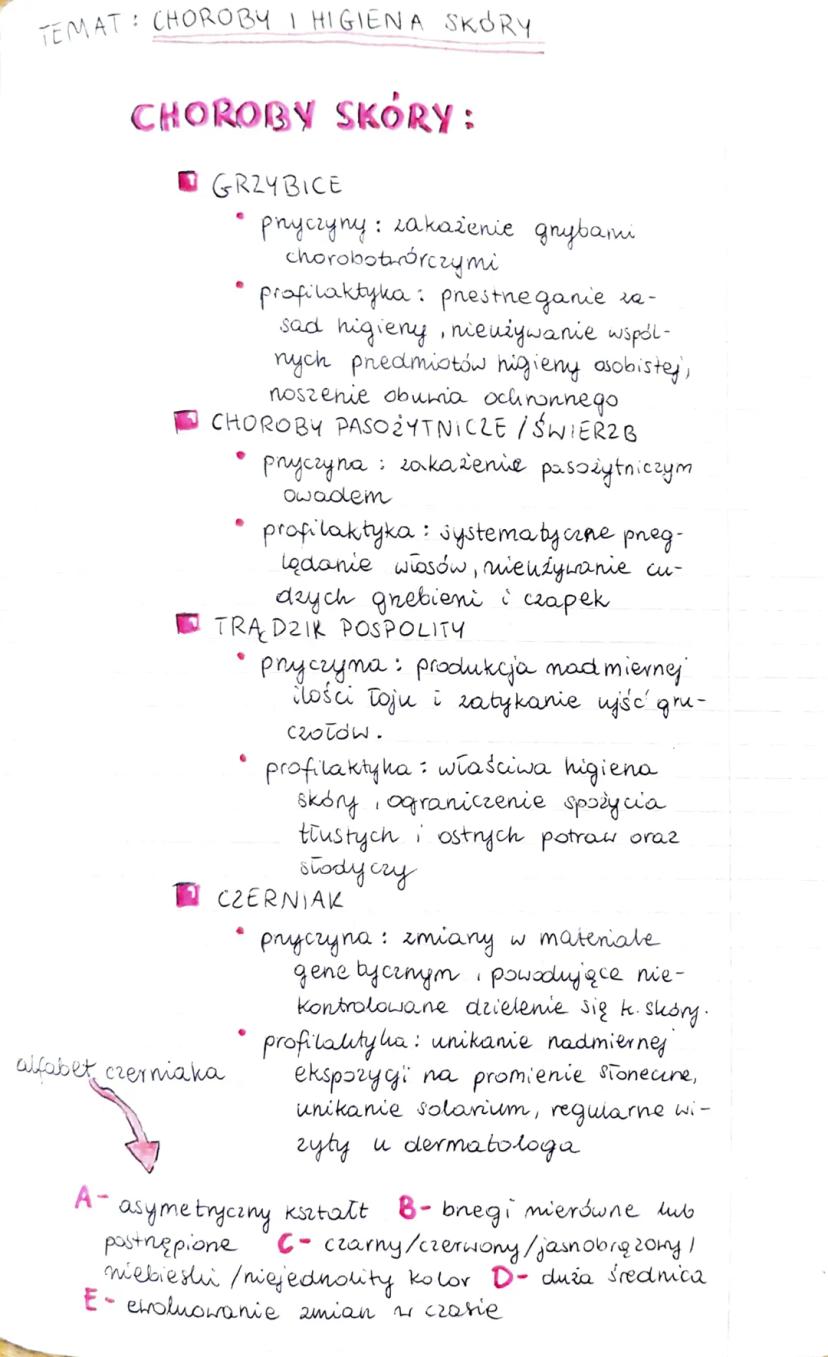 TEMAT: CHOROBY I HIGIENA SKÓRY
CHOROBY SKÓRY:
GRZYBICE
• przyczyny: zakażenie grzybami
chorobotwórczymi
• profilaktyka: przestrzeganie za-
sad higieny, nieużywanie wspól-
nych przedmiotów higieny osobistej,
noszenie obuwia ochronnego
CHOROBY PASOŻYTNICZE / ŚWIERZB
• przyczyna: zakażenie pasożytniczym
owadem
• profilaktyka: systematyczne przeg-
lądanie włosów, nieużywanie cu-
dzych grzebieni i czapek
TRĄDZIK POSPOLITY
• przyczyna: produkcja nadmiernej
ilości łoju i zatykanie ujść gru-
czołów.
• profilaktyka: właściwa higiena
skóry, ograniczenie spożycia
tłustych i ostrych potraw oraz
słodyczy
CZERNIAK
• przyczyna: zmiany w materiale
genetycznym, powodujące nie-
kontrolowane dzielenie się k. skóry.
• profilaktyka: unikanie nadmiernej
ekspozycji na promienie słoneczne,
unikanie solarium, regularne wi-
zyty u dermatologa
alfabet czerniaka
A- asymetryczny kształt B- brzegi nierówne lub
postrzępione C- czarny/czerwony/jasnobrązowy/
niebieski/niejednolity kolor D- duża średnica
E- ewoluowanie zmian w czasie